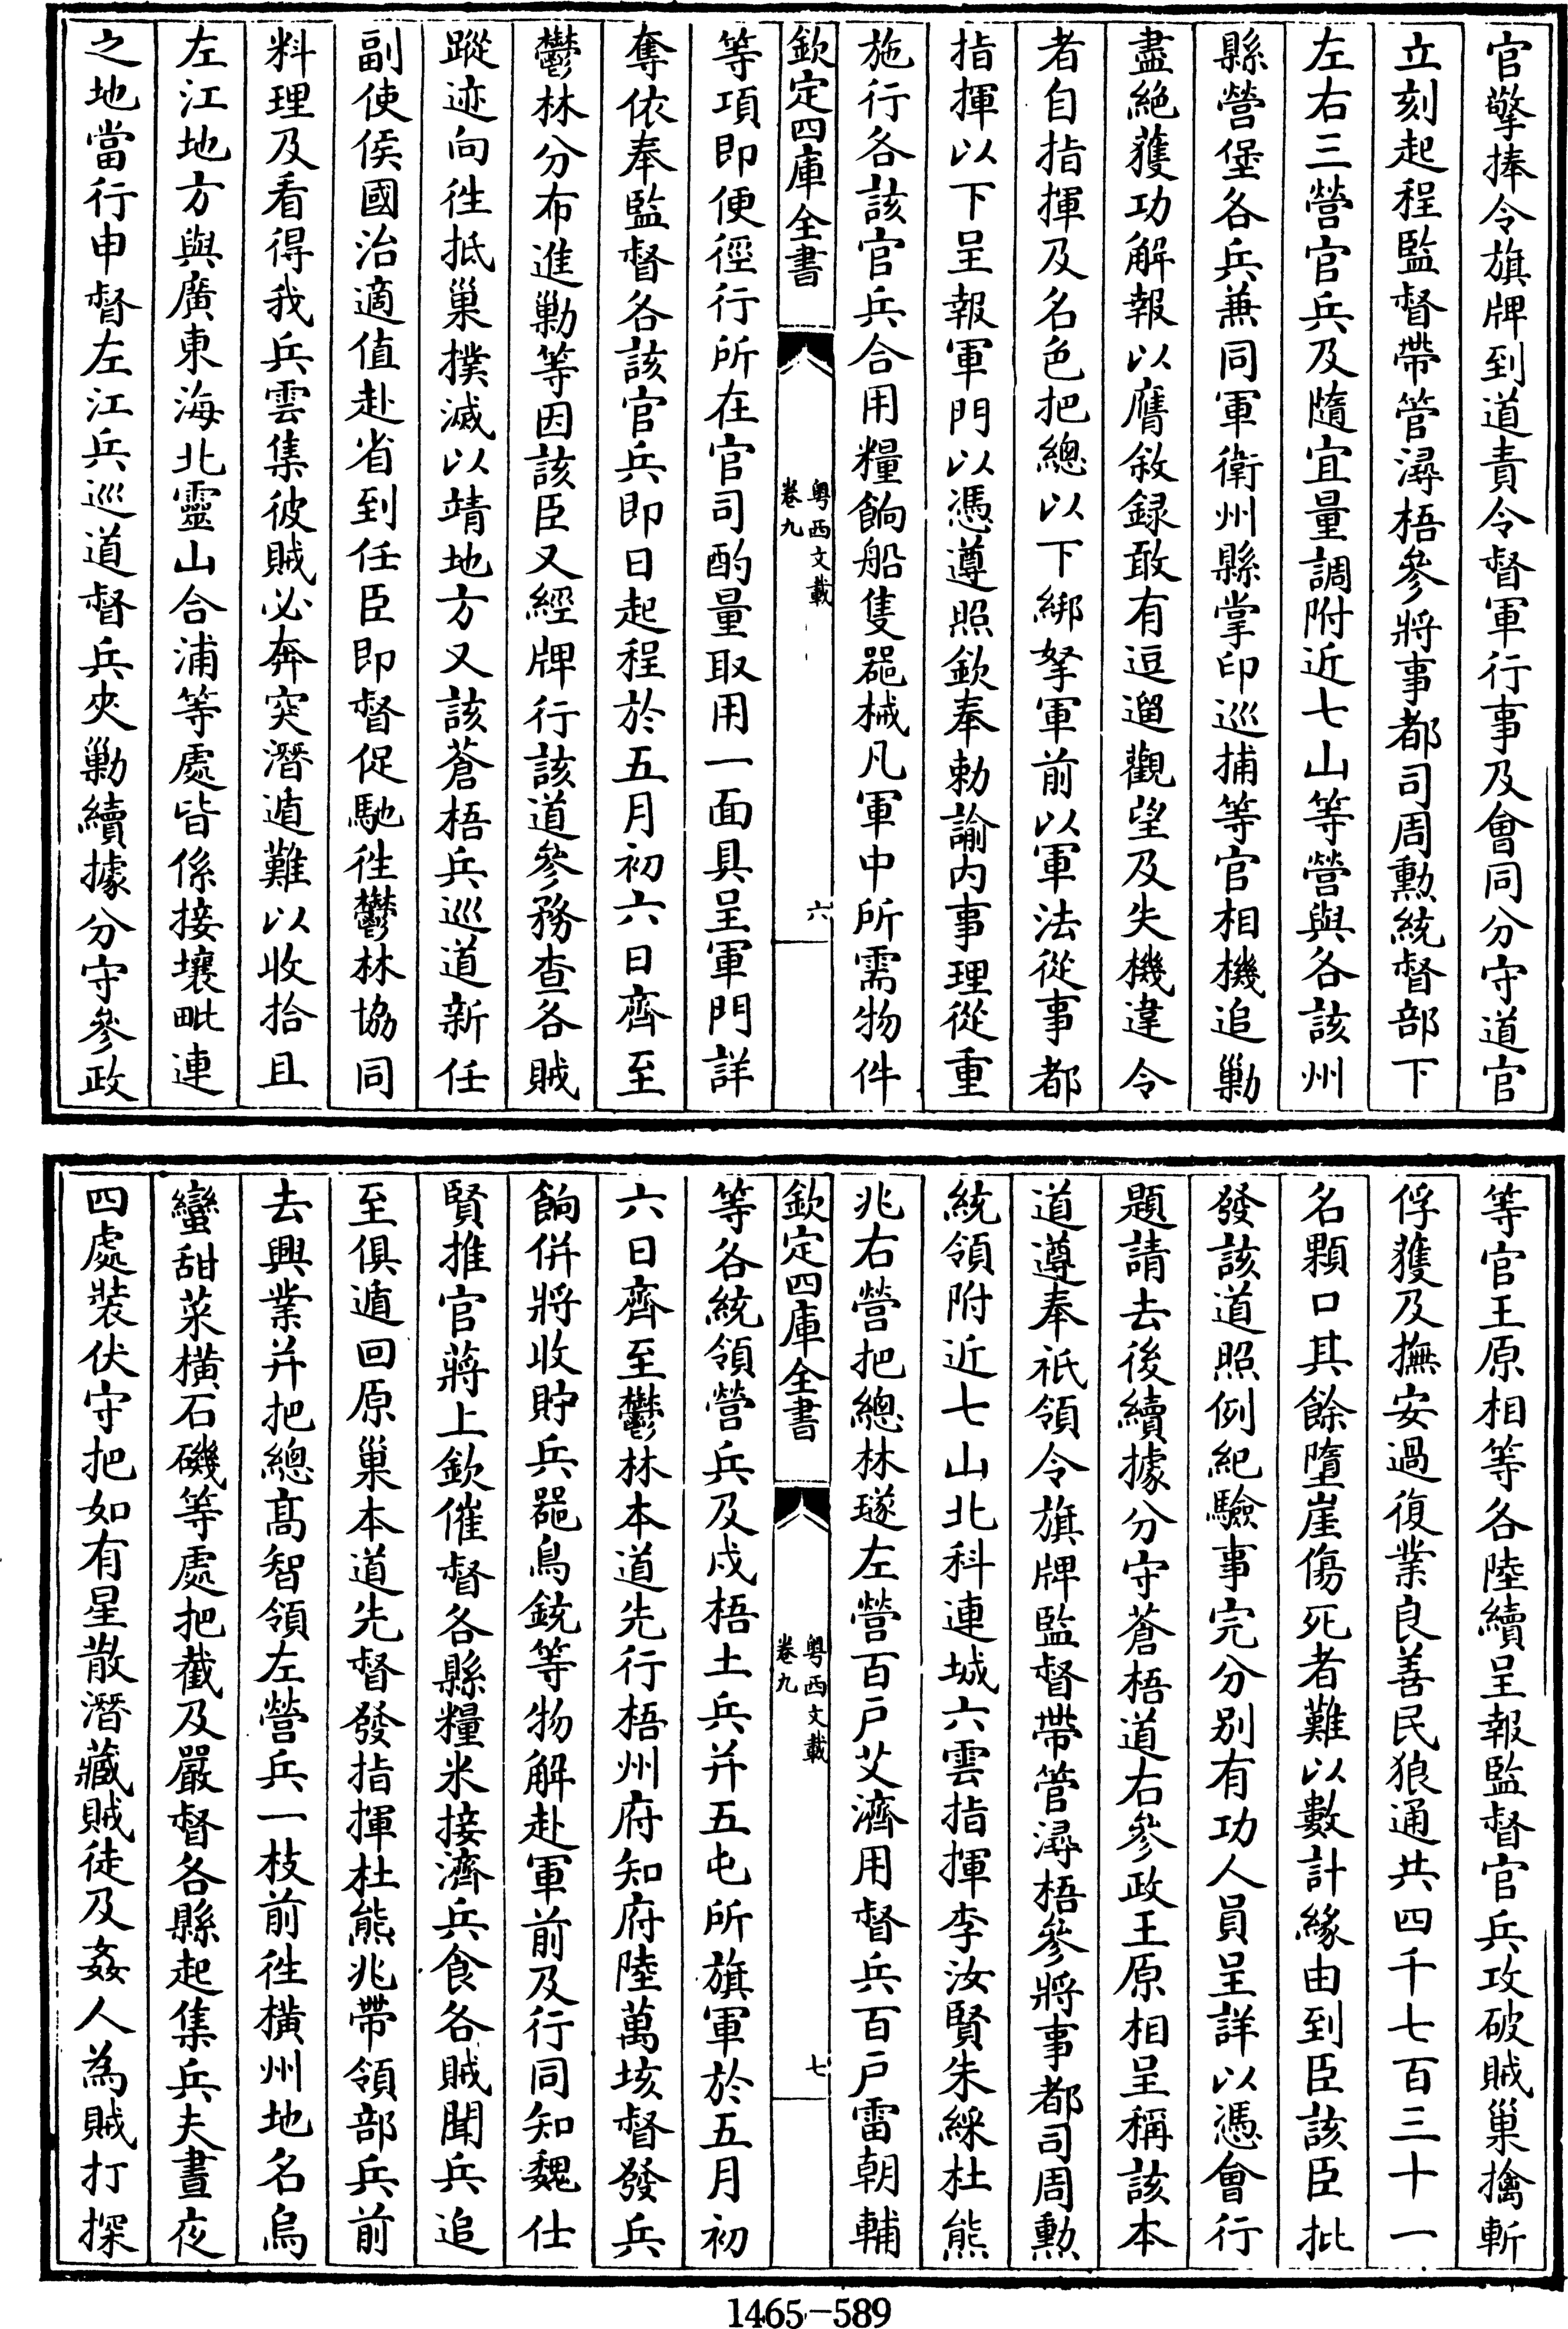 官擎捧令旗牌到道責令督軍行事及會同分守道官
立刻起程監督帶管潯梧參將事都司周勲統督部下
左右三營官兵及隨宜量調附近七山等營與各該州
縣營堡各兵兼同軍衛州縣掌印巡捕等官相機追勦
盡絕獲功解報以膺敘録敢有逗遛觀望及失機違令
者自指揮及名色把總以下綁拏軍前以軍法從事都
指揮以下呈報軍門以憑遵照欽奉勅諭内事理從重
施行各該官兵合用糧餉船隻噐械凡軍中所需物件
欽定四庫全書
粤西文載
卷九
六
等項即便徑行所在官司酌量取用一面具呈軍門詳
奪依奉監督各該官兵即日起程於五月初六日齊至
鬱林分布進勦等因該臣又經牌行該道參務查各賊
蹤迹向徃抵巢撲滅以靖地方又該蒼梧兵巡道新任
副使侯國治適值赴省到任臣即督促馳徃鬱林協同
料理及看得我兵雲集彼賊必奔突潛遁難以收拾且
左江地方與廣東海北靈山合浦等處皆係接壤毗連
之地當行申督左江兵巡道督兵夾勦續據分守參政
等官王原相等各陸續呈報監督官兵攻破賊巢擒斬
俘獲及撫安過復業良善民狼通共四千七百三十一
名顆口其餘墮崖傷死者難以數計緣由到臣該臣批
發該道照例紀驗事完分别有功人員呈詳以憑會行
題請去後續據分守蒼梧道右參政王原相呈稱該本
道遵奉祇領令旗牌監督帶管潯梧參將事都司周勲
統領附近七山北科連城六雲指揮李汝賢朱綵杜熊
兆右營把總林璲左營百戸艾濟用督兵百戸雷朝輔
欽定四庫全書
粤西文載
卷九
七
等各統領營兵及戍梧土兵并五屯所旗軍於五月初
六日齊至鬱林本道先行梧州府知府陸萬垓督發兵
餉併將收貯兵噐鳥銃等物解赴軍前及行同知魏仕
賢推官蔣上欽催督各縣糧米接濟兵食各賊聞兵追
至俱遁回原巢本道先督發指揮杜熊兆帶領部兵前
去興業并把總髙智領左營兵一枝前徃橫州地名烏
蠻甜菜橫石磯等處把截及嚴督各縣起集兵夫晝夜
四處裝伏守把如有星散潛藏賊徒及姦人為賊打探
1465-589